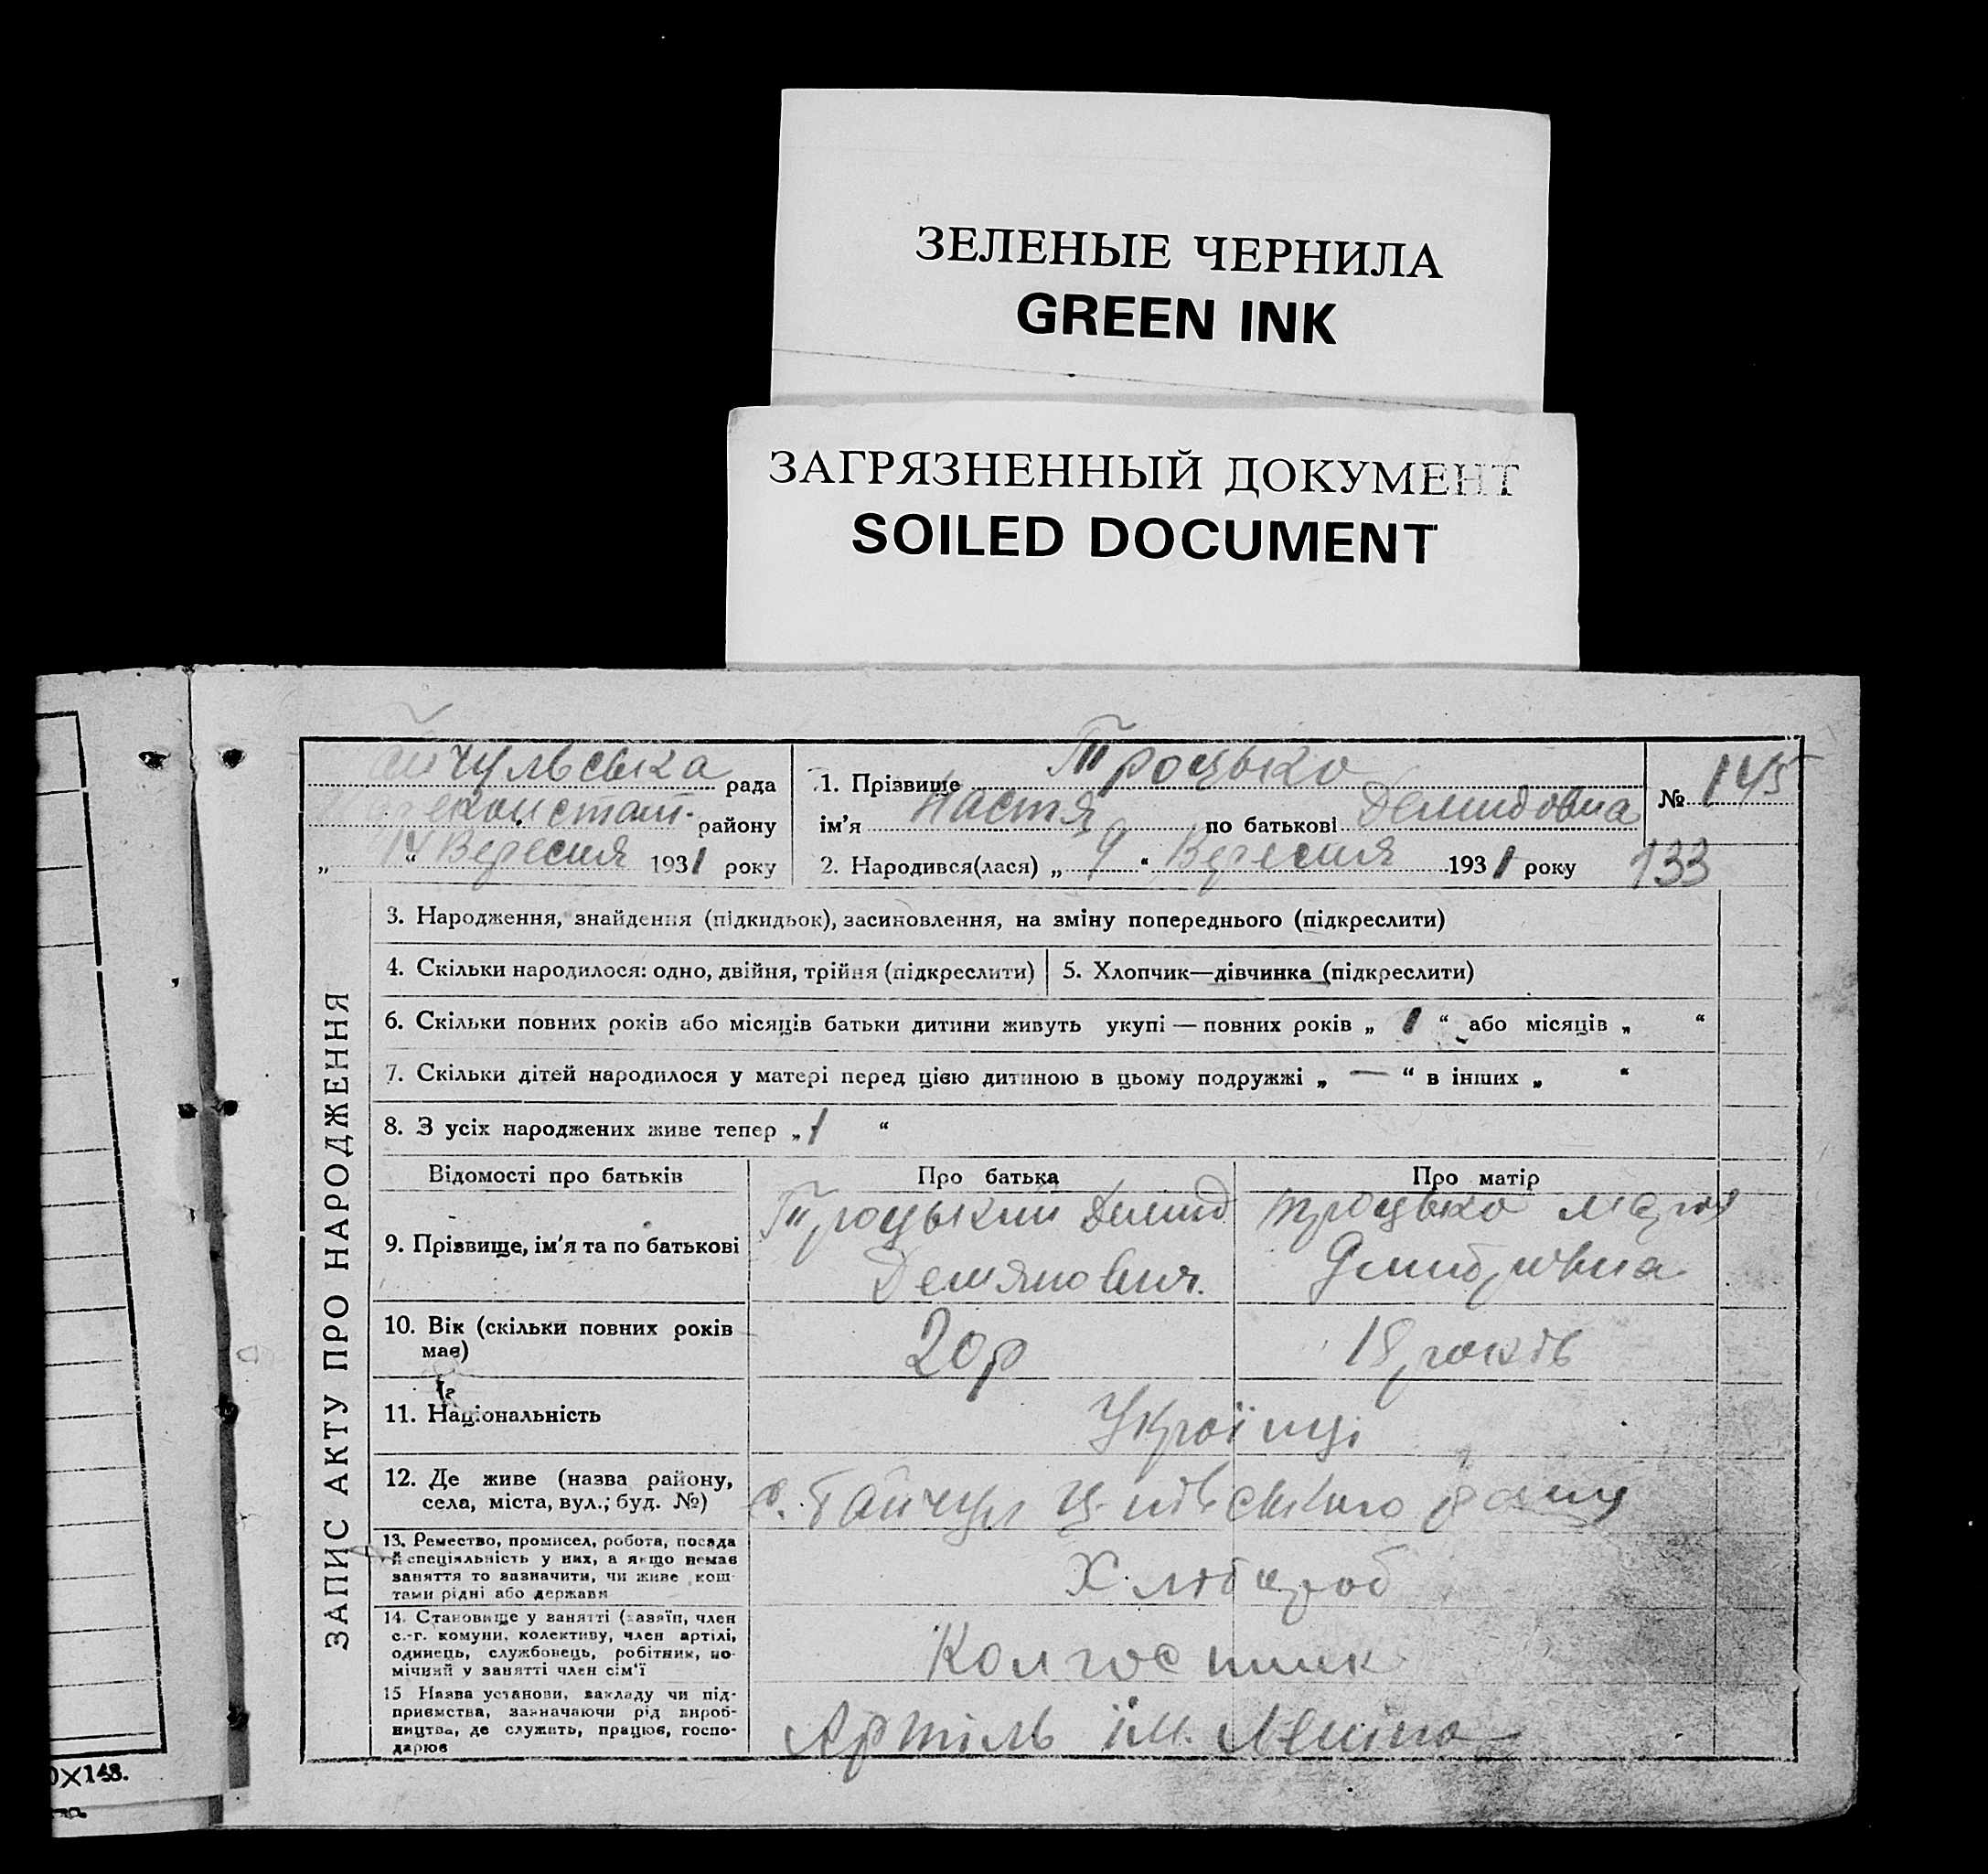 ЗЕЛЕНЫЕ ЧЕРНИЛА
GREEN INK
ЗАГРЯЗНЕННЫЙ ДОКУМЕНТ
SOILED DOCUMENT
рада
району
„14“ Вересня 1931 року
1. Прізвище Троцько
ім'я Настя по батькові Демидовна
2. Народився(лася) „9“ Вересня 1931 року
№ 145
133
ЗАПИС АКТУ ПРО НАРОДЖЕННЯ
3. Народження, знайдення (підкидьок), засиновлення, на зміну попереднього (підкреслити)
4. Скільки народилося: одно, двійня, трійня (підкреслити)
5. Хлопчик—дівчинка (підкреслити)
6. Скільки повних років або місяців батьки дитини живуть укупі — повних років „ 1 “ або місяців „ “
7. Скільки дітей народилося у матері перед цією дитиною в цьому подружжі „ — “ в інших „ “
8. З усіх народжених живе тепер „ 1 “
Відомості про батьків
Про батька
Про матір
9. Прізвище, ім'я та по батькові
Троцький Демид
Демянович
Троцько Марія
Дмитрівна
10. Вік (скільки повних років
має)
20 р
18 років
11. Національність
Українці
12. Де живе (назва району,
села, міста, вул.; буд. №)
с. Гайчул
13. Ремество, промисел, робота, посада
й спеціяльність у них, а якщо немає
заняття то зазначити, чи живе кош-
тами рідні або держави
Хлібороб
14. Становище у занятті (хазяїн, член
с.-г. комуни, колективу, член артілі,
одинець, службовець, робітник, по-
мічний у занятті член сім'ї
Колгоспник
15 Назва установи, закладу чи під-
приємства, зазначаючи рід вироб-
ництва, де служить, працює, госпо-
дарює
Артіль їм. Леніна
0×148.